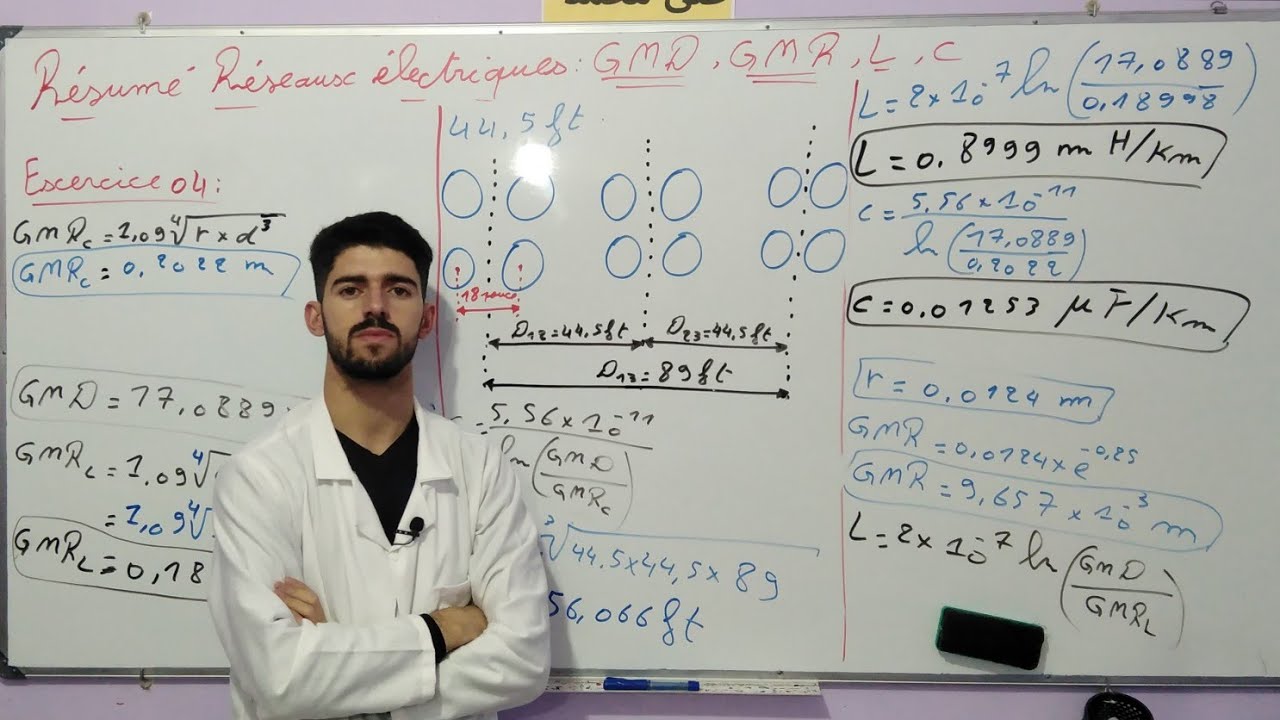 Résumé Réseaux électriques: GMD, GMR, L, C
Excercice 04:
GMR_c = 1,09 ⁴√(r × d³)
GMR_c = 0,2022 m
GMD = 17,0889
GMR_L = 1,09 ⁴√
= 1,09 ⁴√
GMR_L = 0,18
44,5 ft
18 pouce
D₁₂ = 44,5 ft
D₂₃ = 44,5 ft
D₁₃ = 89 ft
= 5,56 × 10⁻¹¹ / ln(GMD / GMR_c)
³√(44,5 × 44,5 × 89)
56,066 ft
L = 2 × 10⁻⁷ ln(17,0889 / 0,18998)
L = 0,8999 m H/Km
C = 5,56 × 10⁻¹¹ / ln(17,0889 / 0,2022)
C = 0,01253 μF/Km
r = 0,0124 m
GMR = 0,0124 × e^-0,25
GMR = 9,657 × 10⁻³ m
L = 2 × 10⁻⁷ ln(GMD / GMR_L)